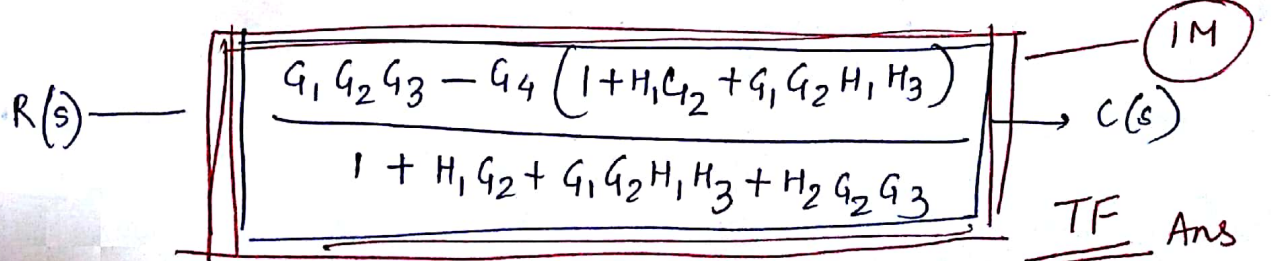 1M
G₁ G₂ G₃ − G₄ (1 + H₁G₂ + G₁ G₂ H₁ H₃)
R(s) C(s)
1 + H₁ G₂ + G₁ G₂ H₁ H₃ + H₂ G₂ G₃
TF Ans